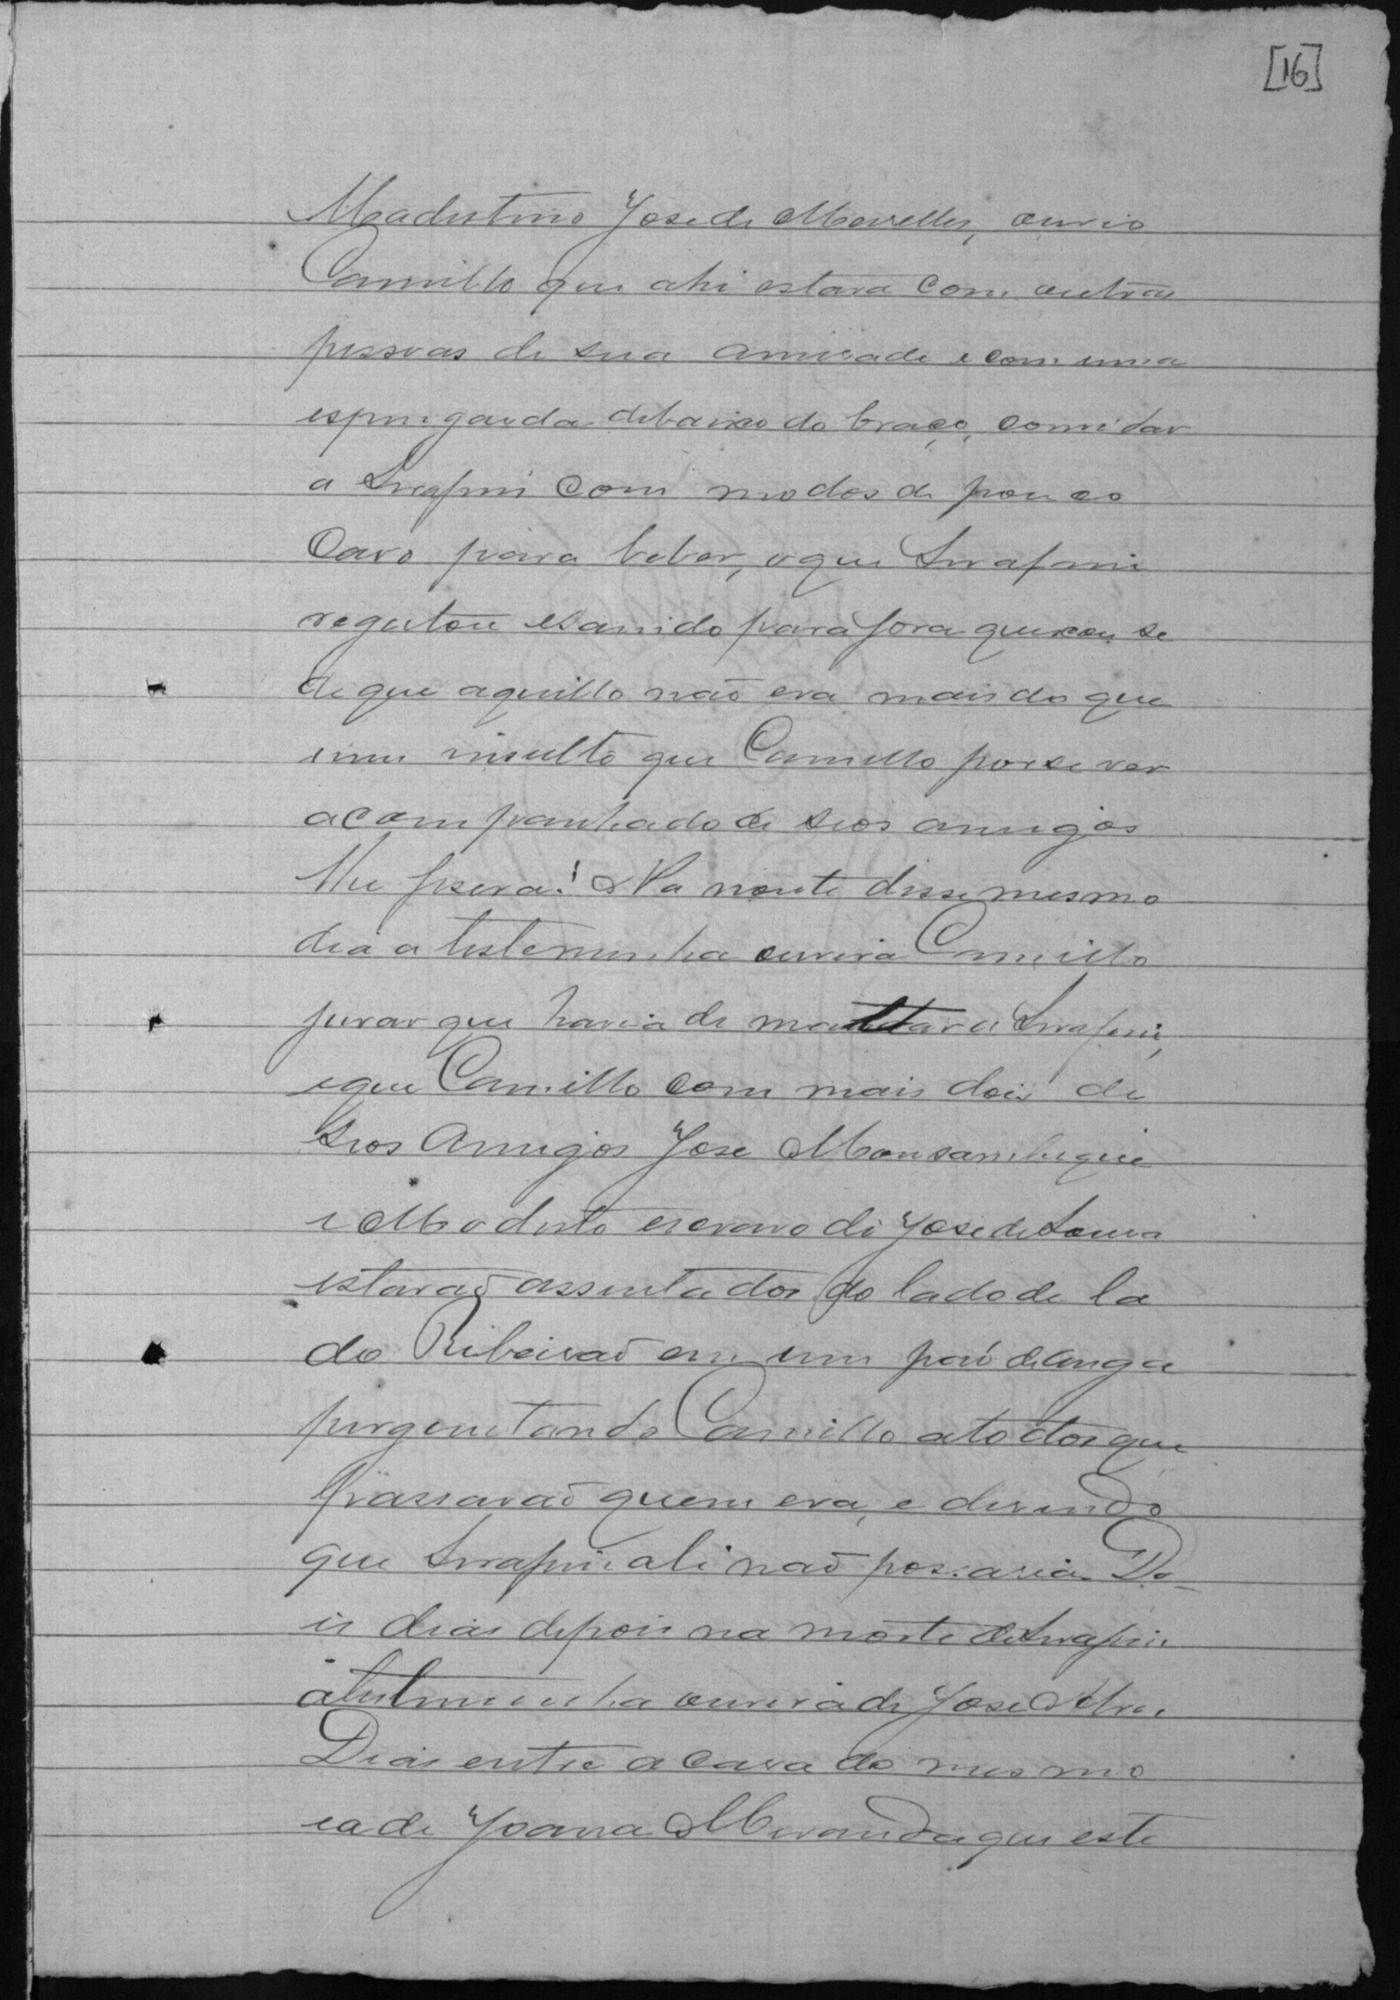 [16]
Madustino Jose de Meirelles, ouvio
Camillo que ahi estava com outras
pessoas de sua amisade e com uma
espingarda debaixo do braço, convidar
a Serafim com modos de pouco
Caso para beber, o que Serafim
regeitou e sahindo para fora queixou se
de que aquillo não era mais do que
um insulto que Camillo por se ver
acompanhado de seos amigos
lhe fisera! Na noute desse mesmo
dia a testemunha ouvira Camillo
jurar que havia de matar a Serafim,
e que Camillo com mais dois de
seos Amigos Jose Monsambique
e Modesto escravo de Jose de Sousa
estavaõ assentados do lado de la
do Ribeiraõ em um paó de anga
perguntando Camillo a todos que
passavaõ quem era, e disendo
que Serafim ali naõ passaria. Do-
is dias depois na morte de Serafim
a testemunha ouvira de Jose Alves
Dias entre a casa do mesmo
e a de Joana Miranda que este